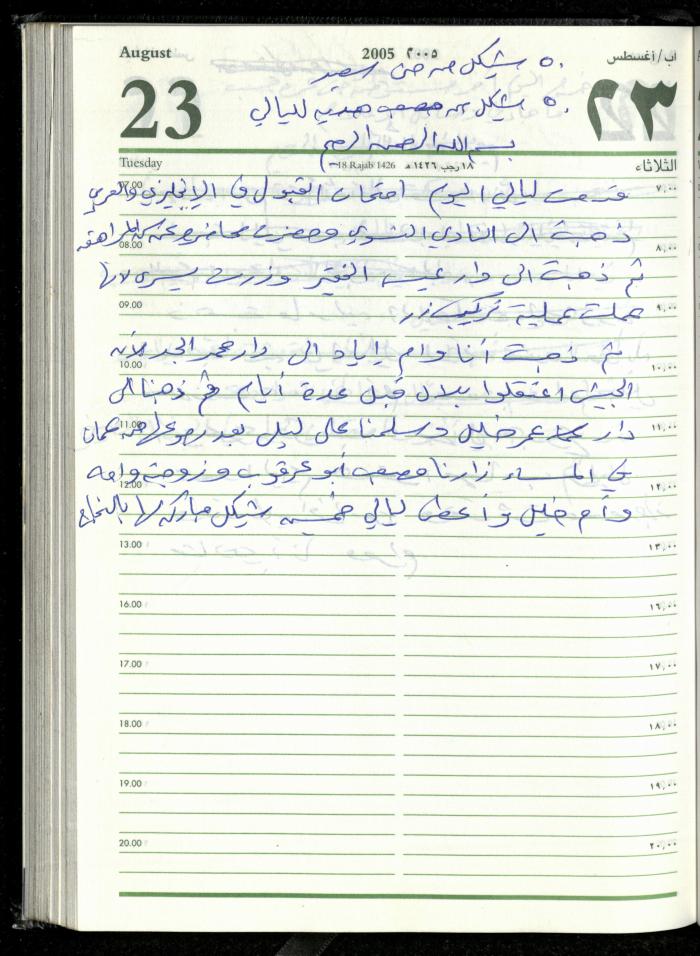 August
2005 ٢٠٠٥
آب/أغسطس
23
٢٣
٥٠ شيكل من سعيد
٥٠ شيكل من مصعب هدية لليالي
بسم الله الرحمن الرحيم
Tuesday
18 Rajab 1426 ١٨ رجب ١٤٢٦ هـ
الثلاثاء
07.00 ٧,٠٠
قدمت ليالي اليوم امتحان القبول في الإنجليزي والعربي
ذهبت الى النادي النسوي وحضرت محاضره عن المراهقه
08.00 ٨,٠٠
ثم ذهبت الى دار عيسى وزرت يسرى لانها
09.00 ٩,٠٠
عملت عملية تركيب
ثم ذهبت أنا وام إياد الى دار محمد الجد لأنه
10.00 ١٠,٠٠
الجيش اعتقلوا بلال قبل عدة أيام ثم ذهبنا الى
11.00 ١١,٠٠
دار عمر خليل وسلمنا على بعد رجوعها من عمان
في المساء زارنا مصعب أبو عرقوب وزوجته وامه
12.00 ١٢,٠٠
وأم خليل وأعطى ليالي خمسين شيكل مباركه لها بالنجاح
13.00 ١٣,٠٠
16.00 ١٦,٠٠
17.00 ١٧,٠٠
18.00 ١٨,٠٠
19.00 ١٩,٠٠
20.00 ٢٠,٠٠